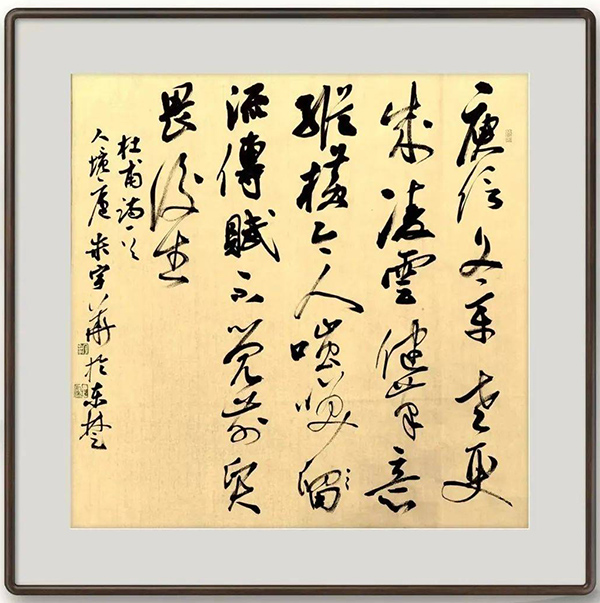 庾信文章老更
成凌雲健筆意
縱橫今人嗤點留
流傳賦不覺前賢
畏後生
杜甫詩一首
人境廬宇華於东楚